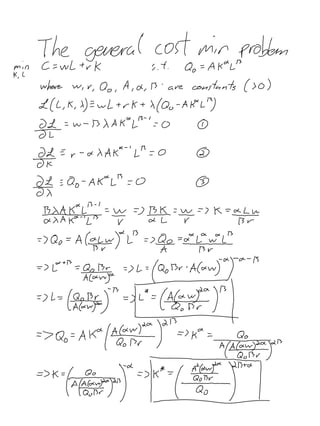 The general cost min problem
min K, L C = wL + rK s.t. Q₀ = AK^α L^β
where w, r, Q₀, A, α, β are constants (>0)
ℒ(L, K, λ) ≡ wL + rK + λ(Q₀ - AK^α L^β)
∂ℒ/∂L = w - βλAK^α L^(β-1) = 0 ①
∂ℒ/∂K ≡ r - αλAK^(α-1) L^β = 0 ②
∂ℒ/∂λ ≡ Q₀ - AK^α L^β = 0 ③
βλAK^α L^(β-1) / αλAK^(α-1) L^β = w/r => βK/αL = w/r => K = αLw/βr
=> Q₀ = A(αLw/βr)^α L^β => Q₀/A = α^α L^α w^α L^β/βr
=> L^(α+β) = Q₀βr/A(αw)^α => L = (Q₀βr · A(αw)^-α)^(-α-β)
=> L = (Q₀βr/A(αw)^2α)^-β => L* = (A(αw)^2α/Q₀βr)^β
=> Q₀ = AK^α (A(αw)^2α/Q₀βr)^2β => K^α = Q₀/A(A(αw)^2α/Q₀βr)^2β
=> K = (Q₀/A(A(αw)^2α/Q₀βr)^2β)^-α => K* = ((A²(αw)^2α/Q₀βr)/Q₀)^(2β+α)